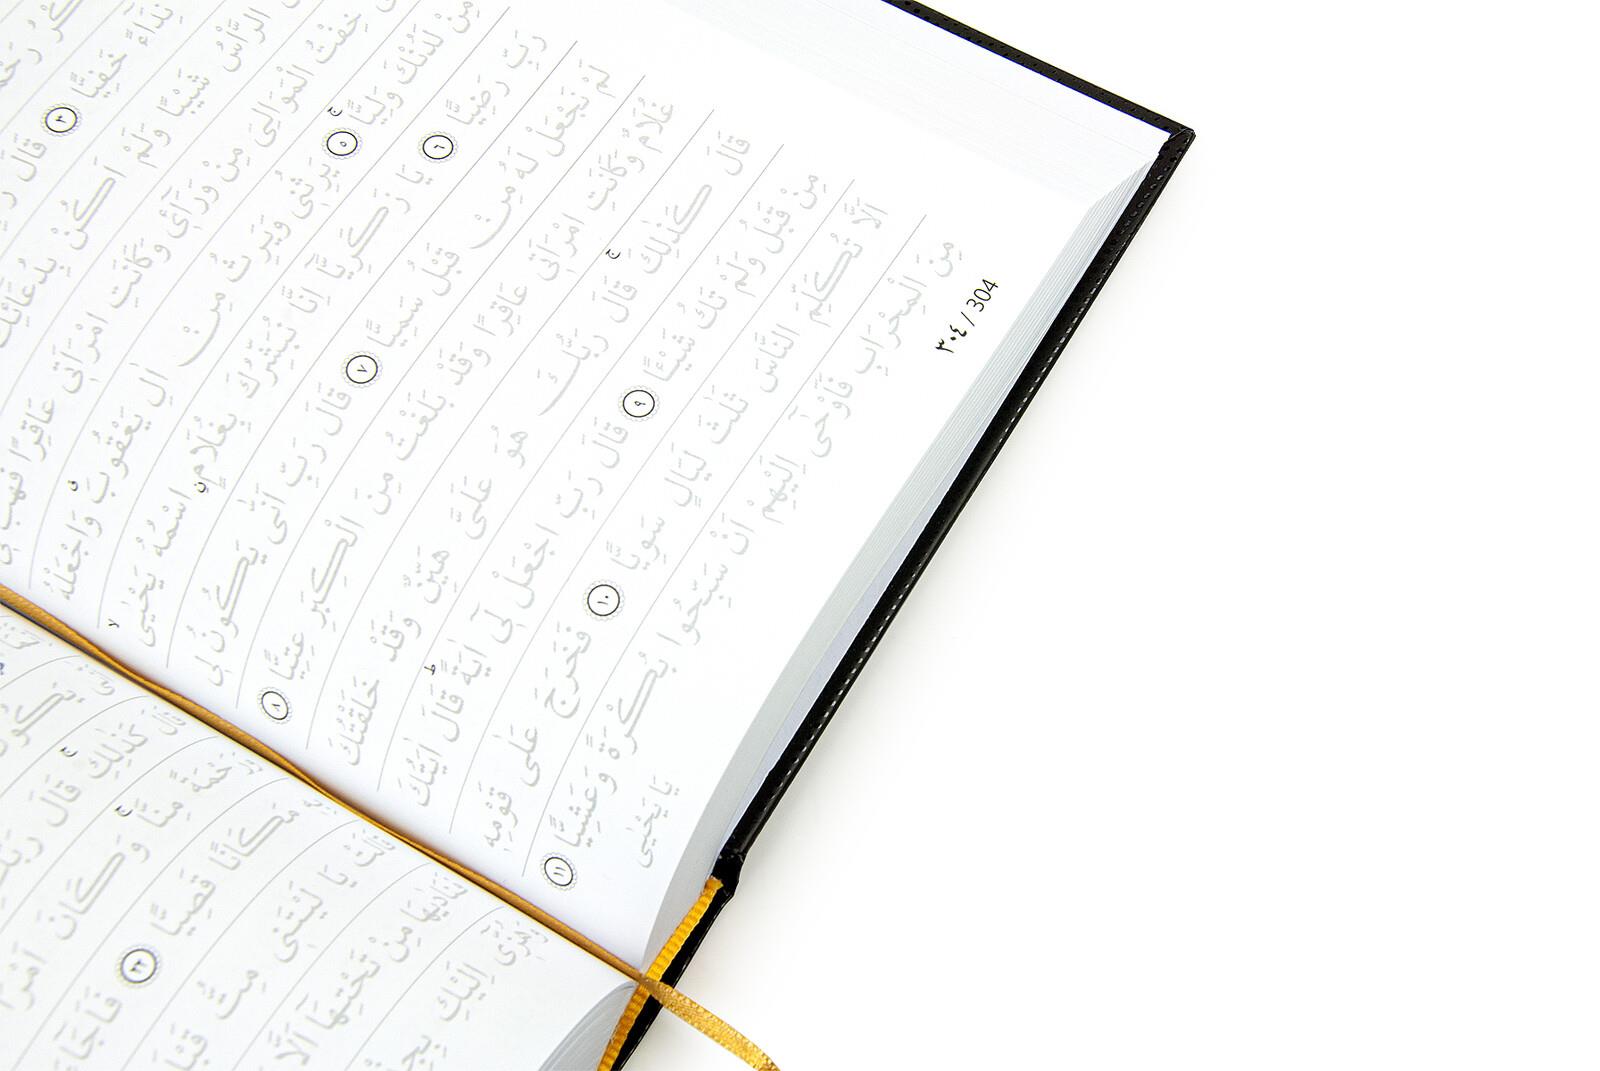 نِدَٓاءً خَفِيًّا ٣ قَالَ
الرَّأْسُ شَيْبًا وَلَمْ اَكُنْ بِدُعَٓائِكَ
خِفْتُ الْمَوَالِىَ مِنْ وَرَٓائ۪ى وَكَانَتِ امْرَاَت۪ى عَاقِرًا فَهَبْ ل۪ى
مِنْ لَدُنْكَ وَلِيًّاۚ ٥ يَرِثُن۪ى وَيَرِثُ مِنْ اٰلِ يَعْقُوبَۗ وَاجْعَلْهُ
رَبِّ رَضِيًّا ٦ يَا زَكَرِيَّٓا اِنَّا نُبَشِّرُكَ بِغُلَامٍۨ اسْمُهُ يَحْيٰىۙ
لَمْ نَجْعَلْ لَهُ مِنْ قَبْلُ سَمِيًّا ٧ قَالَ رَبِّ اَنّٰى يَكُونُ ل۪ى
غُلَامٌ وَكَانَتِ امْرَاَت۪ى عَاقِرًا وَقَدْ بَلَغْتُ مِنَ الْكِبَرِ عِتِيًّا ٨
قَالَ كَذٰلِكَۚ قَالَ رَبُّكَ هُوَ عَلَىَّ هَيِّنٌ وَقَدْ خَلَقْتُكَ
مِنْ قَبْلُ وَلَمْ تَكُ شَيْئًا ٩ قَالَ رَبِّ اجْعَلْ ل۪ٓى اٰيَةًۜ قَالَ اٰيَتُكَ
اَلَّا تُكَلِّمَ النَّاسَ ثَلٰثَ لَيَالٍ سَوِيًّا ١٠ فَخَرَجَ عَلٰى قَوْمِه۪
مِنَ الْمِحْرَابِ فَاَوْحٰٓى اِلَيْهِمْ اَنْ سَبِّحُوا بُكْرَةً وَعَشِيًّا ١١
يَا يَحْيٰى
٣٠٤ / 304
يَكُونُ
قَالَ كَذٰلِكِۚ قَالَ رَبُّكِ
رَحْمَةً مِنَّاۚ وَكَانَ اَمْرًا
مَكَانًا قَصِيًّا ٢٢ فَاَجَٓاءَ
قَالَتْ يَا لَيْتَن۪ى مِتُّ قَبْلَ
فَنَادٰيهَا مِنْ تَحْتِهَٓا اَلَّا
وَهُزّ۪ٓى اِلَيْكِ